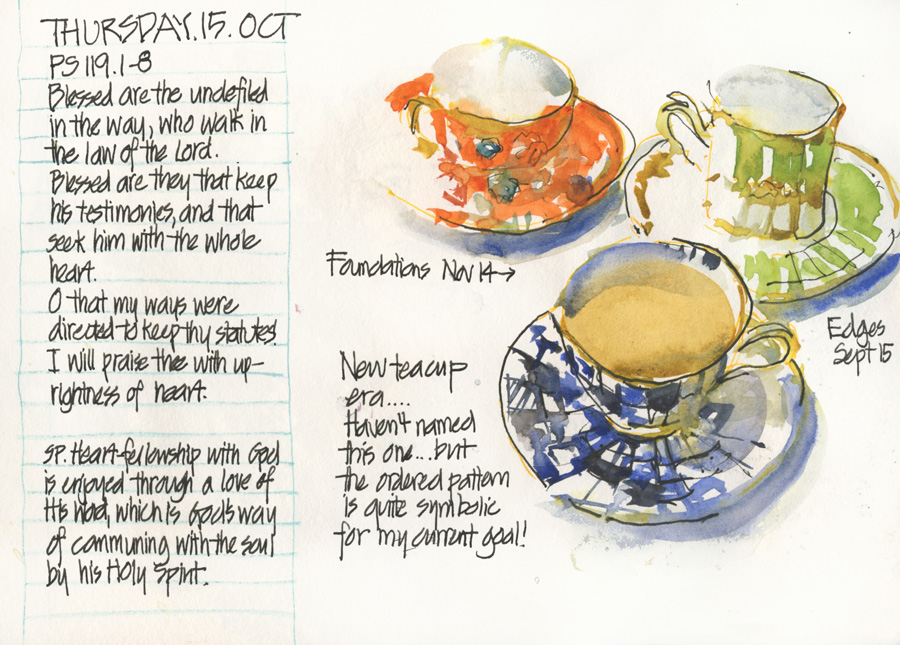 THURSDAY.15.OCT
PS 119.1-8
Blessed are the undefiled
in the way, who walk in
the law of the Lord.
Blessed are they that keep
his testimonies, and that
seek him with the whole
heart.
O that my ways were
directed to keep thy statutes!
I will praise thee with up-
rightness of heart.
SP. Heart-fellowship with God
is enjoyed through a love of
His Word, which is God's way
of communing with the soul
by his Holy Spirit.
Foundations Nov 14→
Edges
Sept 15
New teacup
era....
Haven't named
this one...but
the ordered pattern
is quite symbolic
for my current goal!